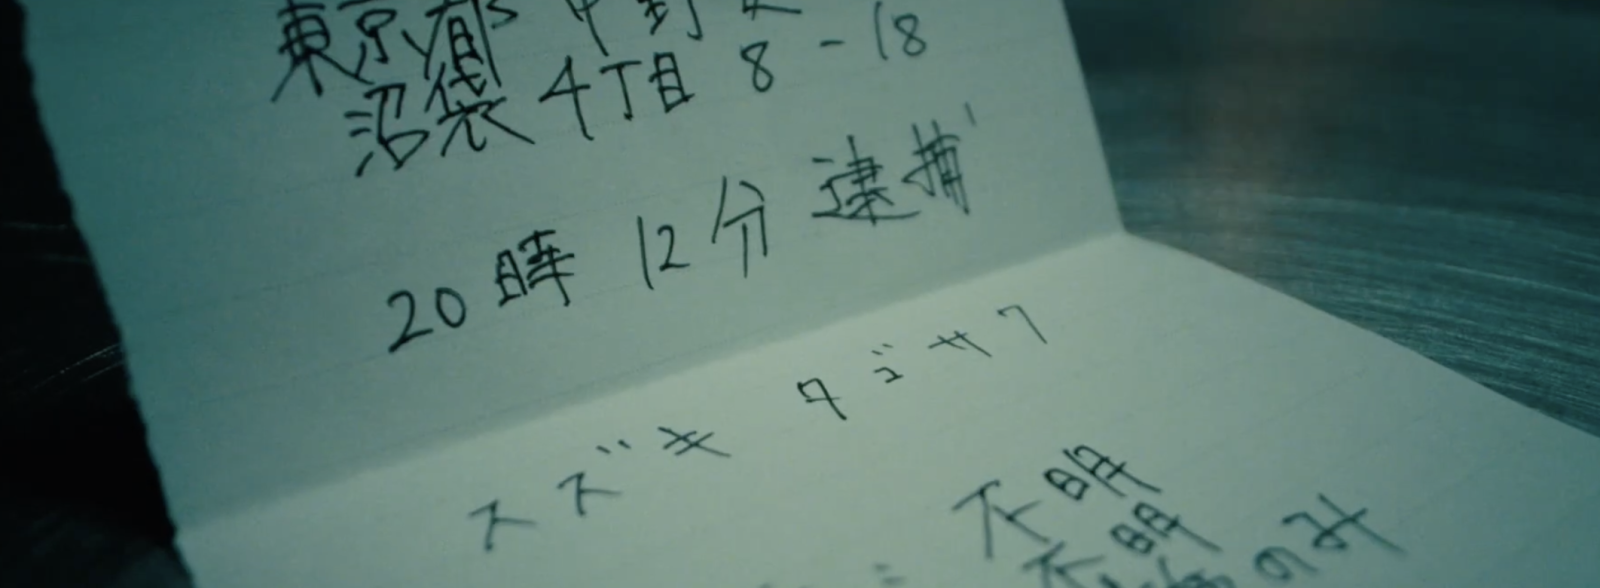 東京都中野区
沼袋4丁目 8-18
20時12分 逮捕
スズキ タゴサク
不明
不明
のみ